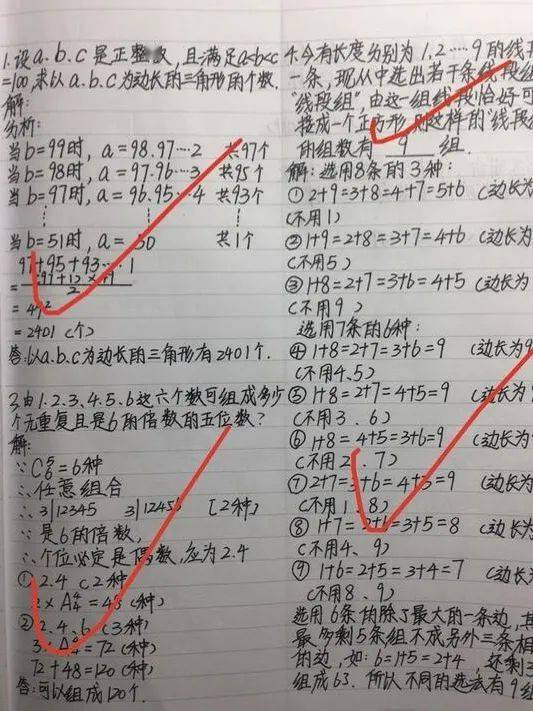 1.设a.b.c是正整数,且满足a<b<c
=100,求以a.b.c为边长的三角形的个数.
解:
分析:
当b=99时, a=98.97…2 共97个
当b=98时, a=97.96…3 共95个
当b=97时, a=96.95…4 共93个
⋮ ⋮ ⋮
当b=51时, a=50 共1个
97+95+93…1
=
= 49²
= 2401 (个)
答:以a.b.c为边长的三角形有2401个.
3.由1.2.3.4.5.6这六个数可组成多少
个无重复且是6的倍数的五位数?
解:
∵ C⁵₆=6种
∴任意组合
∴ 3|12345 3|12456 [2种]
∵ 是6的倍数,
∴个位必定是偶数,应为2.4
① 2.4 (2种)
2×A⁴₄=48(种)
② 2.4.6 (3种)
3×A⁴₄=72(种)
72+48=120(种)
答:可以组成120个.
4.今有长度分别为1.2……9的线
一条,现从中选出若干条线段组
“线段组”,由这一组线段恰好可
接成一个正方形,则这样的“线段
的组数有 9 组.
解:选用8条的3种:
① 2+9=3+8=4+7=5+6 (边长为
(不用1)
② 1+9=2+8=3+7=4+6 (边长为
(不用5)
③ 1+8=2+7=3+6=4+5 (边长为
(不用9)
选用7条的6种:
④ 1+8=2+7=3+6=9 (边长为9
(不用4.5)
⑤ 1+8=2+7=4+5=9 (边长为
(不用3.6)
⑥ 1+8=4+5=3+6=9 (边长为
(不用2.7)
⑦ 2+7=3+6=4+5=9 (边长为
(不用1.8)
⑧ 1+7=2+6=3+5=8 (边长为
(不用4、9)
⑨ 1+6=2+5=3+4=7 (边长为
(不用8.9)
选用6条的除了最大的一条边,其
最多剩5条组不成另外三条相
的边,如:6=1+5=2+4,还剩3
组成63.所以不同的选法有9组